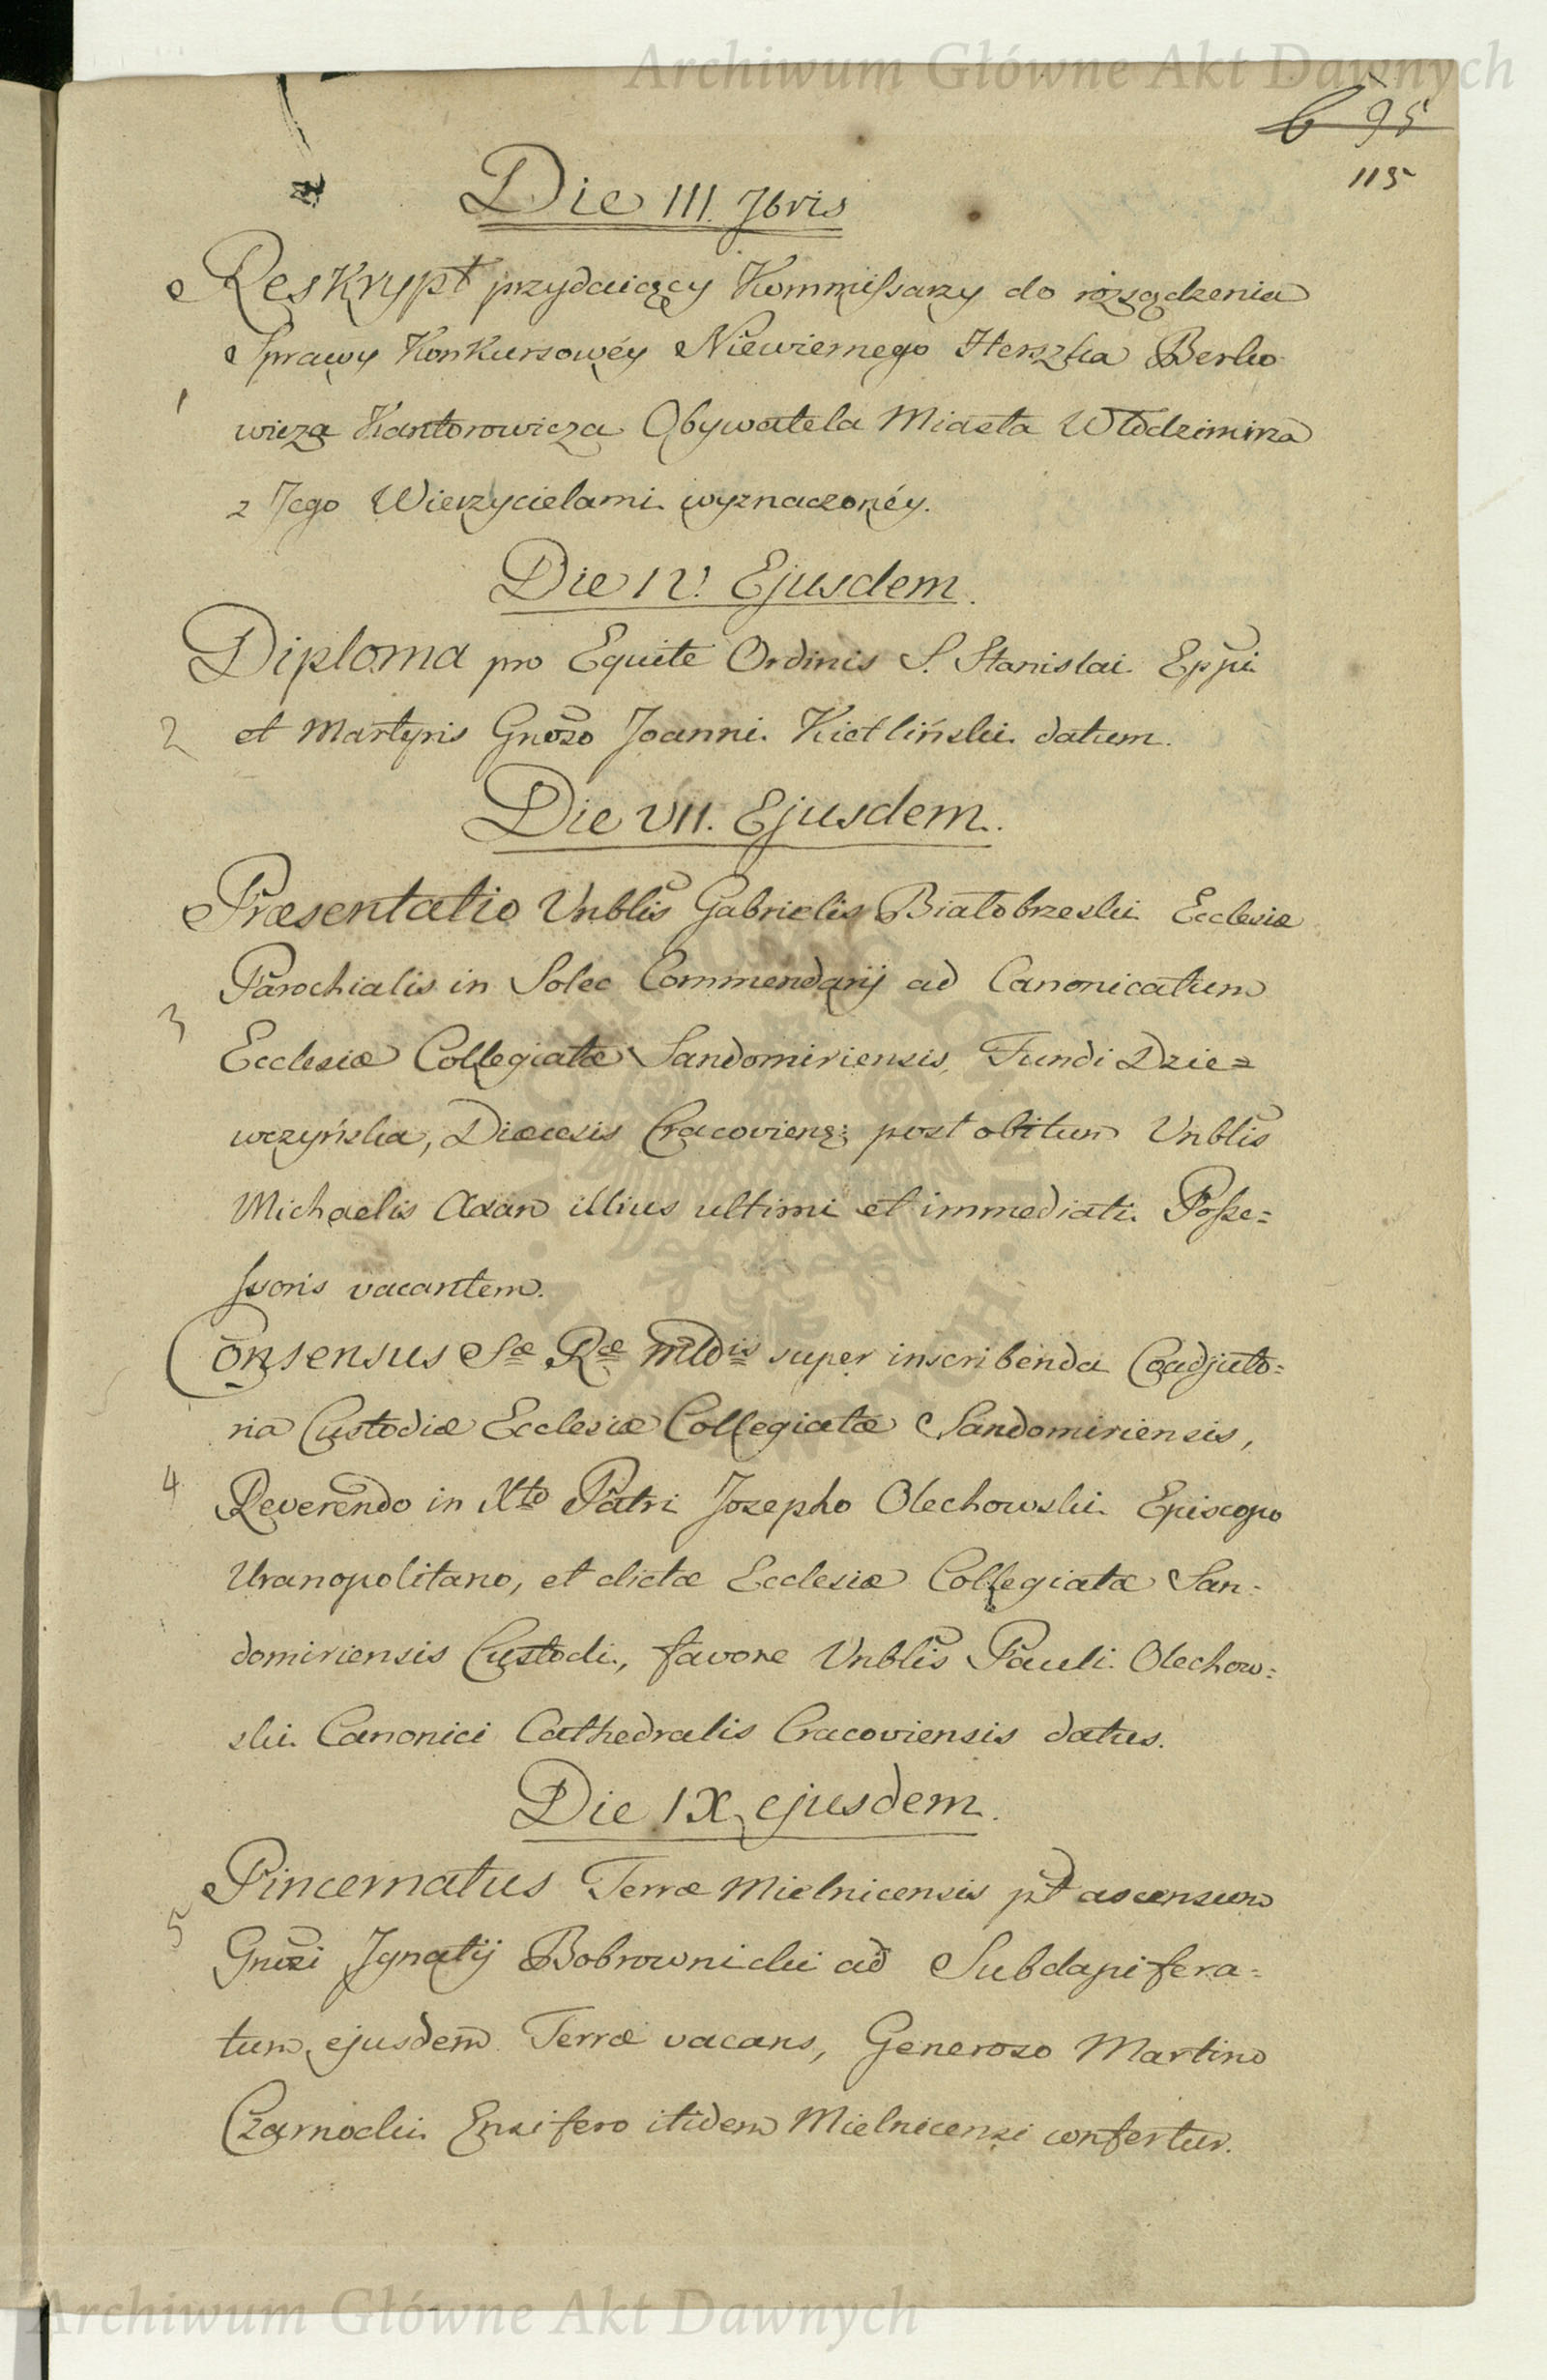 Archiwum Główne Akt Dawnych
6 95
115
Die III. 7bris
Reskrypt przydaiący Kommissarzy do rozsądzenia
Sprawy Konkursowéy Niewiernego Herszka Berko
1
wicza Kantorowicza Obywatela Miasta Włodzimirza
z Jego Wierzycielami wyznaczonéy.
Die IV. Ejusdem.
Diploma pro Equite Ordinis S. Stanislai Eppi
2 et Martyris Gnoso Joanni Kietliński datum.
Die VII. Ejusdem.
Præsentatio Vnblis Gabrielis Białobrzeski Ecclesiæ
Parochialis in Solec Commendarij ad Canonicatum
3
Ecclesiæ Collegiatæ Sandomiriensis, Fundi Dzie=
wczyńska, Diœcesis Cracoviens: post obitum Vnblis
Michaelis Axan illius ultimi et immediati Posse=
ssoris vacantem.
Consensus Sæ Ræ Mttis super inscribenda Coadjuto=
ria Custodiæ Ecclesiæ Collegiatæ Sandomiriensis,
4 Reverendo in Xto Patri Josepho Olechowski Episcopo
Uranopolitano, et dictæ Ecclesiæ Collegiatæ San=
domiriensis Custodi, favore Vnblis Pauli Olechow=
ski Canonici Cathedralis Cracoviensis datus.
Die IX ejusdem.
Pincernatus Terræ Mielnicensis pt ascensum
5
Gnosi Ignatij Bobrownicki ad Subdapifera=
tum ejusdem Terræ vacans, Generoso Martino
Czarnocki Ensifero itidem Mielnicensi confertur.
Archiwum Główne Akt Dawnych